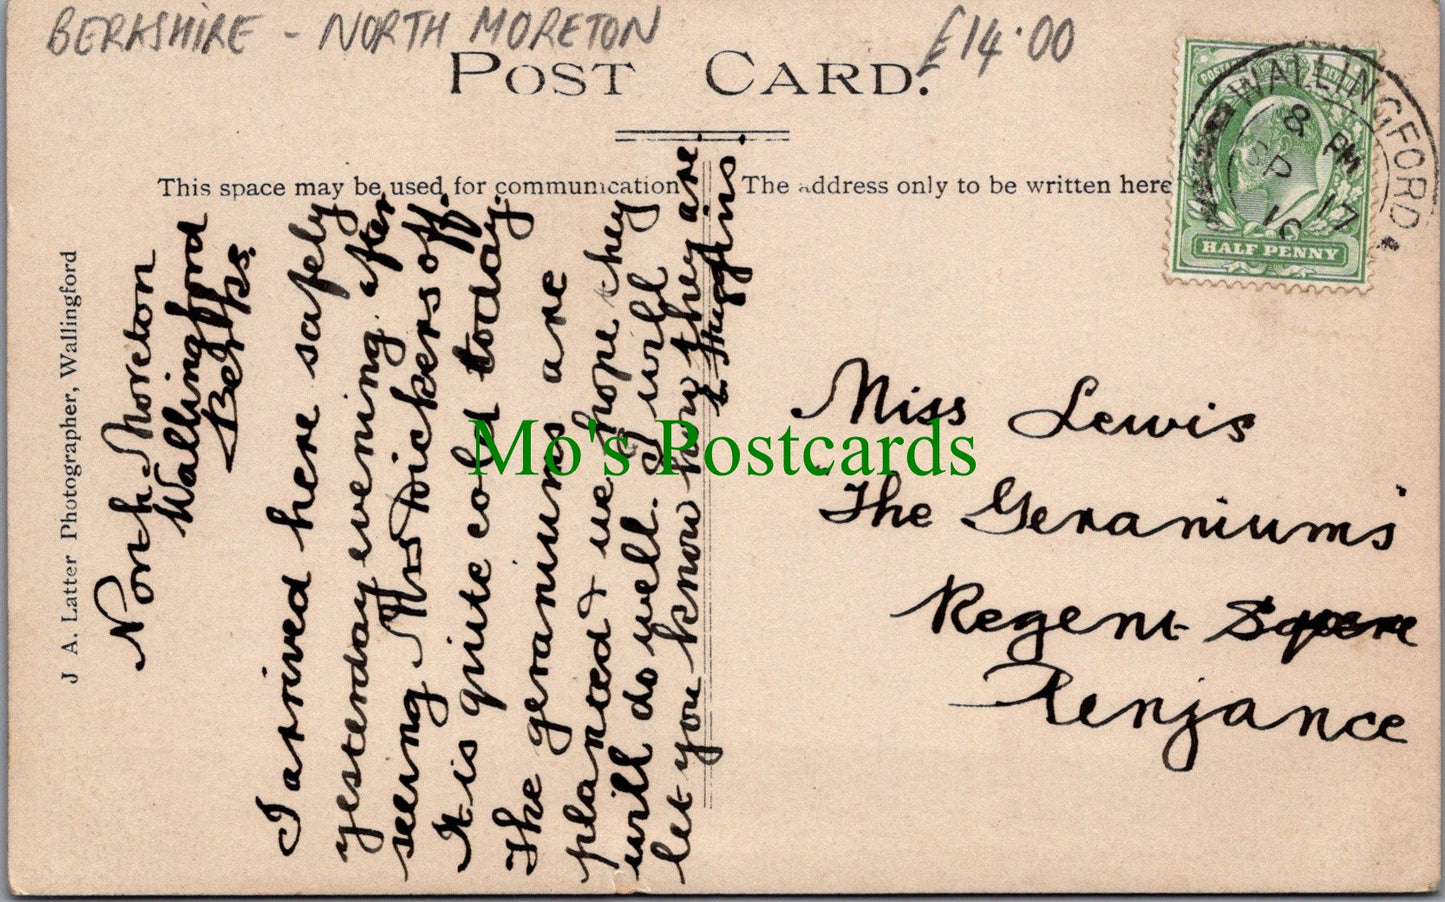 BERKSHIRE - NORTH MORETON
£14.00
POST CARD.
This space may be used for communication
The address only to be written here
WALLINGFORD
8 PM
SP 17
10
POSTAGE
HALF PENNY
J A. Latter Photographer, Wallingford
North Moreton
Wallingford
Berks.
I arrived here safely
yesterday evening after
seeing Mrs Vickers off.
It is quite cold today.
The geraniums are
planted & we hope they
will do well. I will
let you know how they are
L. Huggins.
Miss Lewis
"The Geraniums"
Regent Square
Penzance
Mo's Postcards